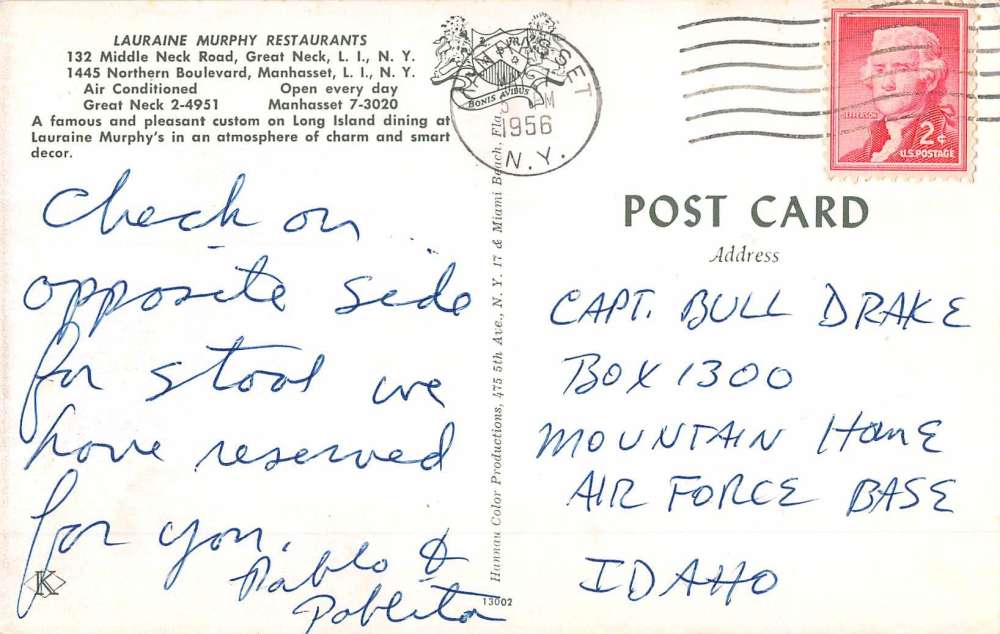 LAURAINE MURPHY RESTAURANTS
132 Middle Neck Road, Great Neck, L. I., N. Y.
1445 Northern Boulevard, Manhasset, L. I., N. Y.
Air Conditioned Open every day
Great Neck 2-4951 Manhasset 7-3020
A famous and pleasant custom on Long Island dining at
Lauraine Murphy's in an atmosphere of charm and smart
decor.
Check on
opposite side
for stool we
have reserved
for you.
Pablo &
Pablita
K
BONIS AVIBUS
MANHASSET
PM
1956
N.Y.
JEFFERSON
2¢
U.S. POSTAGE
Hannau Color Productions, 475 5th Ave., N. Y. 17 & Miami Beach, Fla.
13002
POST CARD
Address
CAPT. BULL DRAKE
BOX 1300
MOUNTAIN HOME
AIR FORCE BASE
IDAHO